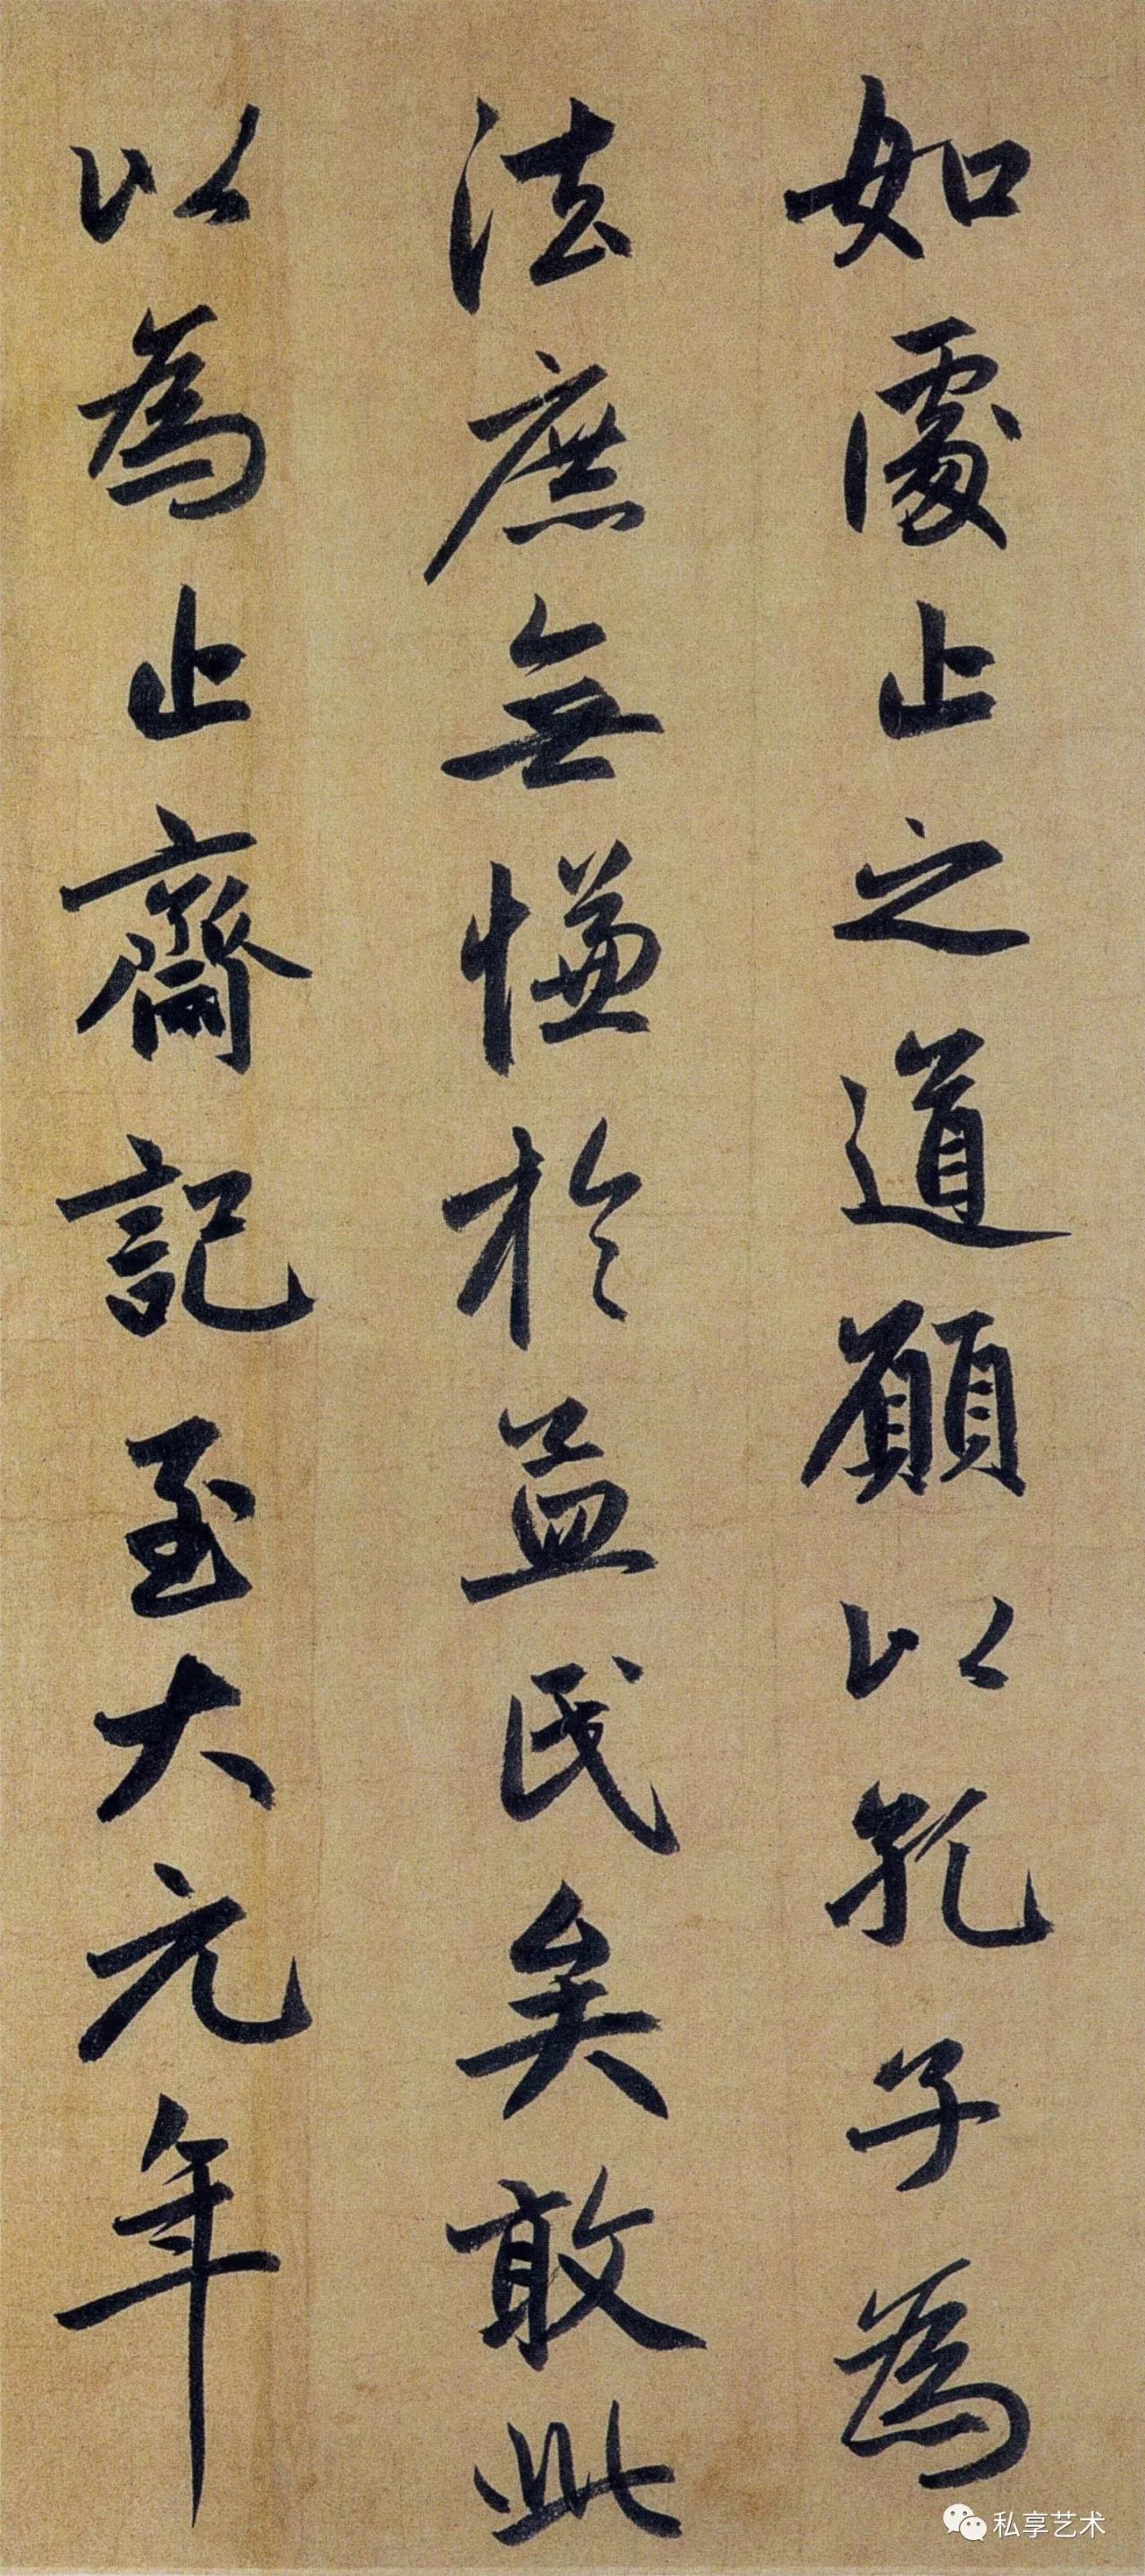 如處止之道願以孔子為
法庶無慊於益民矣敢此
以為止齋記至大元年
私享艺术